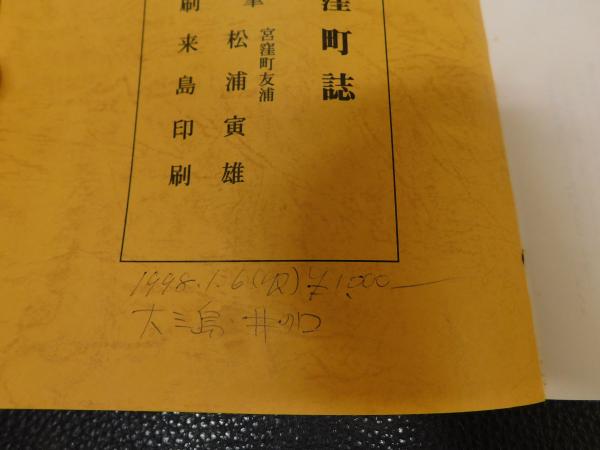 窪町誌
宮窪町友浦
筆 松浦寅雄
刷 来島印刷
1998.1.6(火)¥1,000—
大三島・井の口